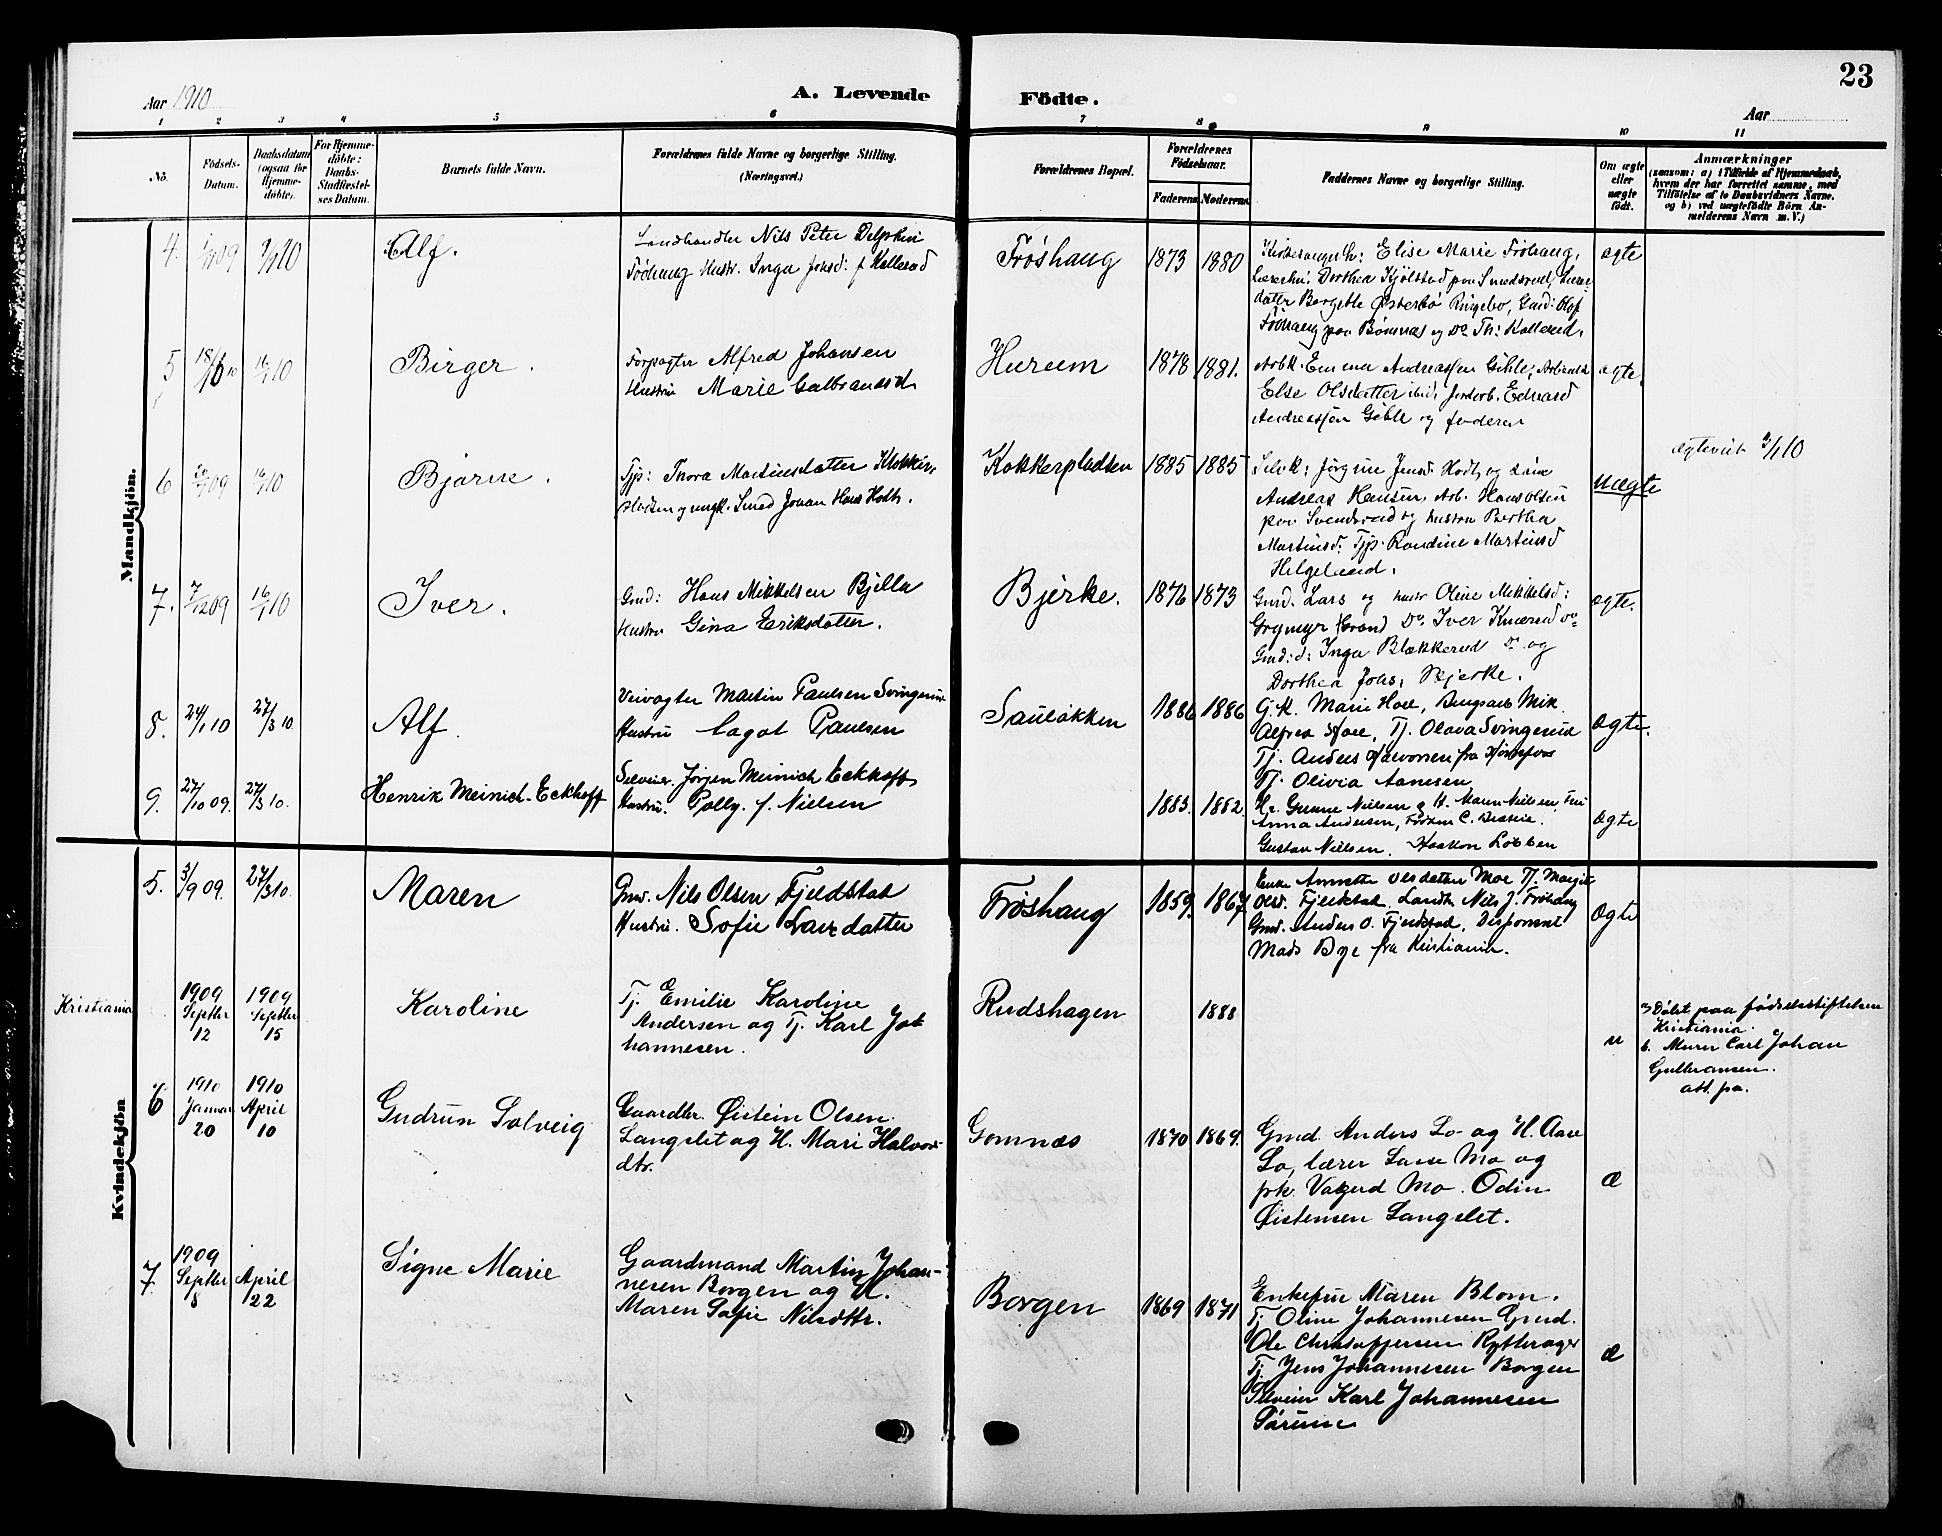 23
Aar 1910
A. Levende
Födte.
Aar
1 2 3 4 5 6 7 8 9 10 11
No.
Födsels-
Datum.
Daabsdatum
(ogsaa for
Hjemme-
döbte).
For Hjemme-
döbte:
Daabs-
Stadfæstel-
ses Datum.
Barnets fulde Navn.
Forældrenes fulde Navne og borgerlige Stilling.
(Næringsvei.)
Forældrenes Bopæl.
Forældrenes
Födselsaar.
Faderens Moderens
Faddernes Navne og borgerlige Stilling.
Om ægte
eller
uægte
födt.
Anmærkninger
(saasom: a) i Tilfælde af Hjemmedaab,
hvem der har forrettet samme, med
Tilföielse af to Daabsvidners Navne.
og b) ved uægtefödte Börn An-
melderens Navn m. V.)
Mandkjön.
4.
Alf.
Landhandler Nils Peter
Fröhaug Hustr. Inga Johsd: f Kollerud
Frøshaug
1873 1880
Elise Marie Fröhaug,
Dorthea Kjölstad
Borgetle Østerbö Ringebo, Gmd: Olaf
Fröhaug paa Bömnæs og Do Th: Kollerud.
ægte
5
16/1 10
Birger.
Forpagter Alfred Johansen
Hustru Marie Gulbrandsd
Hureem
1878 1881.
Arbk. Emma Andreassen Gihle,
Else Olsdatter ibid, Jorderb. Edvard
Andreassen Gihle og faderen
ægte
6
16/1 10
Bjarne.
Tjp: Thora Martinsdatter
og ungk. Smed Johan Hans Hodt.
Kokkerpladsen
1885 1885
Selvk: Jørgine Jensd Hodt, og
Andreas Hansen, Arb. Hans Olsen
paa Svendsrud og hustru Bertha
Martinsd: Tjp. Randine Martinsd
Helgeland.
uægte
ægteviet 3/1 10
7.
7/12 09
16/1 10
Iver.
Gmd: Hans Mikkelsen Bjella
Hustru Gina Eriksdatter.
Bjerke.
1876 1873
Gmd. Lars og hustr Oline Mikkelsd:
Grymyr (Gran) Do Iver Knærud Do
Gmd:d: Inga Blækkerud Do og
Dorthea Johs. Bjerke.
ægte.
8.
24/1 10
27/3 10
Alf.
Veivogter Martin Paulsen Svingerud
Hustru Lagot Paulsen
Sauløkken
1886 1886
G.k. Marie Hoel, Bergsarb Mik.
Alfred Hoel, Tj. Olava Svingerud
Tj. Anders Halvorsen fra Hönefos
Tj. Olivia Aanesen
ægte.
9.
27/10 09.
27/3 10.
Henrik Meinich-Eckhoff
Selveier. Jörgen Meinich Eckhoff
Hustru. Polly. f. Nielsen
1883. 1882.
Hr. Gunne Nielsen og H. Maren Nielsen, Fru
Anna Andersen, Frøken C.
Gustav Nielsen. Haakon Löbben
ægte
Kvindekjön
5.
3/9 09.
27/3 10.
Maren
Gmd. Nils Olsen Fjeldstad
Hustru. Sofie Larsdatter
Frøshaug
1859. 1867.
Enke Annette Olsdatter Moe Tj. Margit
Olsd. Fjeldstad, Landh. Nils J. Fröhaug
Gmd. Anders O. Fjeldstad, Disponent
Mads Bye fra Kristiania.
ægte
Kristiania
1909
Septbr
12
1909
Septbr
15
Karoline
Tj. Emilie Karoline
Andersen og Tj. Karl Jo-
hannesen.
Rudshagen
1888
u
a) Döbt paa fødselsstiftelsen
Kristiania.
b. Murer Carl Johan
Gulbransen.
att. pa.
6
1910
Januar
20
1910
April
10
Gudrun Solveig
Gaardbr. Øistein Olsen
Langslet og H. Mari Halvors-
dtr.
Gomnæs
1870 1869.
Gmd. Anders Lo og H. Aase
Lo, lærer Lasse Mo og
frk. Valgerd Mo. Odin
Øistensen Langslet.
Æ
7.
1909
Septbr
8
April
22
Signe Marie
Gaardmand Martin Johan-
nesen Borgen og H.
Maren Sofie Nilsdtr.
Borgen
1869 1871
Enkefru Maren Blom.
T. Oline Johannesen Gmd.
Ole Christoffersen Rytterager
Tj. Jens Johannesen Borgen
Selveier Karl Johannesen
Sørum
Æ